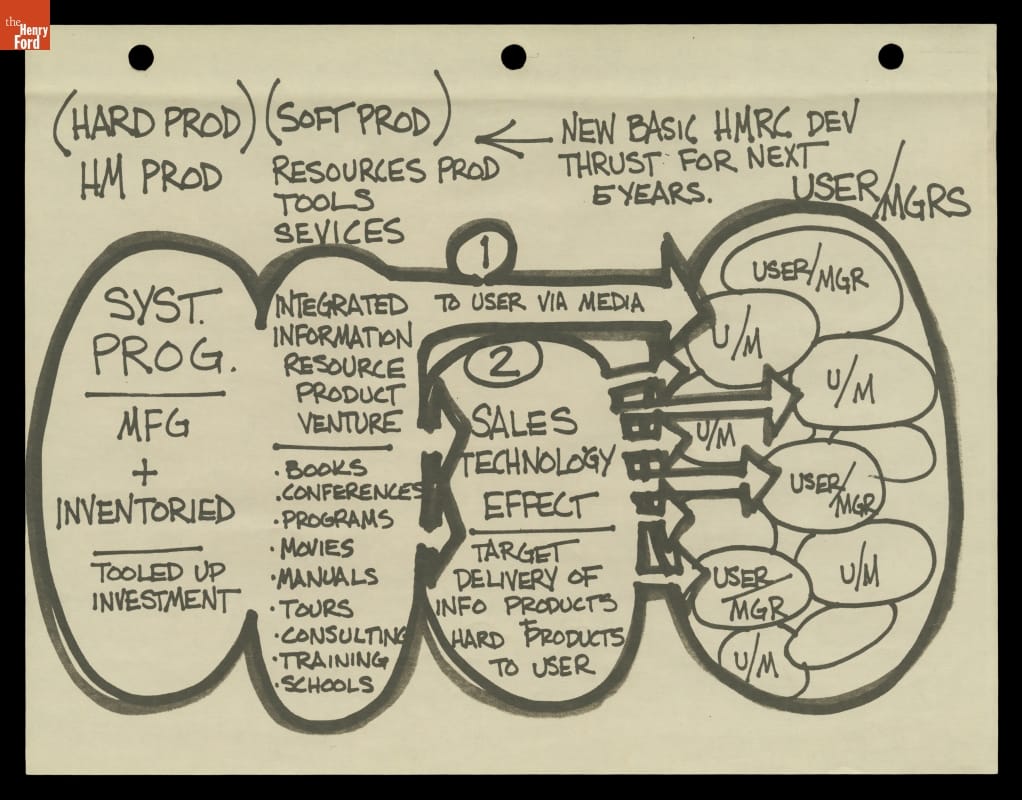 the
Henry
Ford
(HARD PROD)
HM PROD
(SOFT PROD)
RESOURCES PROD
TOOLS
SEVICES
NEW BASIC HMRC DEV
THRUST FOR NEXT
5 YEARS.
USER/MGRS
SYST.
PROG.
MFG
+
INVENTORIED
TOOLED UP
INVESTMENT
INTEGRATED
INFORMATION
RESOURCE
PRODUCT
VENTURE
• BOOKS
• CONFERENCES
• PROGRAMS
• MOVIES
• MANUALS
• TOURS
• CONSULTING
• TRAINING
• SCHOOLS
1
TO USER VIA MEDIA
2
SALES
TECHNOLOGY
EFFECT
TARGET
DELIVERY OF
INFO PRODUCTS
+
HARD PRODUCTS
TO USER
USER/MGR
U/M
U/M
U/M
USER/
MGR
U/M
USER
MGR
U/M